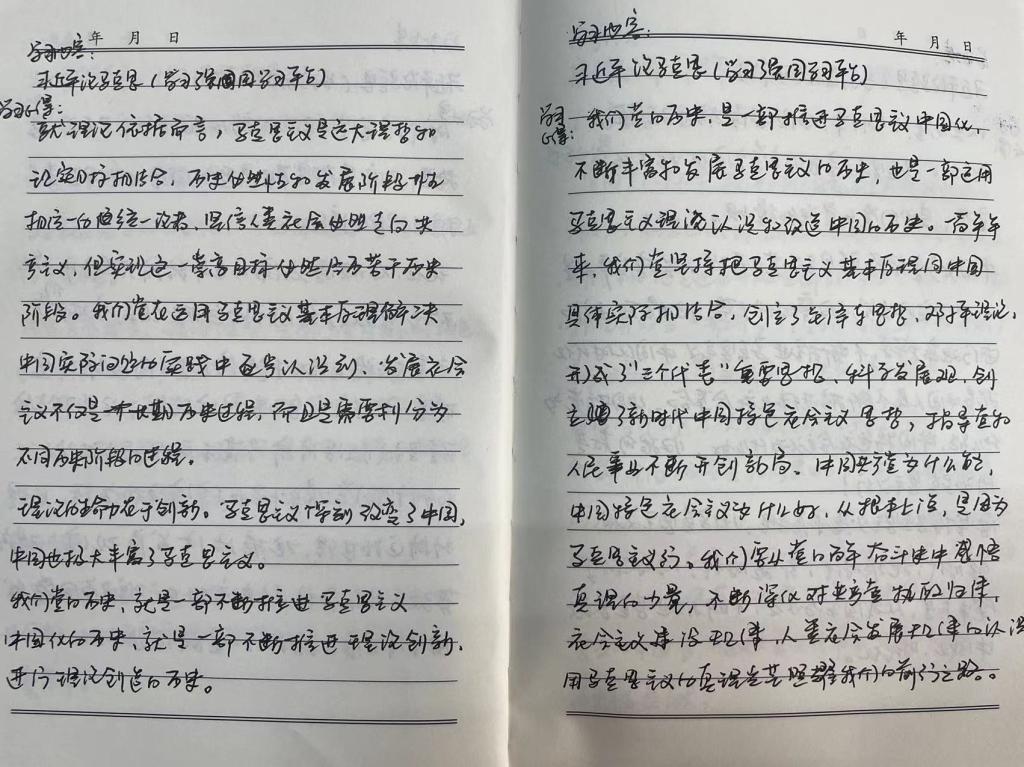 年 月 日
学习内容：
习近平论马克思（学习强国学习平台）
学习心得：
就理论依据而言，马克思主义是远大理想和
现实目标相结合，历史必然性和发展阶段性
相统一的统一论者，坚信人类社会必然走向共
产主义，但实现这一崇高目标必然经历若干历史
阶段。我们党在运用马克思主义基本原理解决
中国实际问题的实践中逐步认识到，发展社会
主义不仅是一个长期历史过程，而且是需要划分为
不同历史阶段的过程。
理论的生命力在于创新。马克思主义深刻改变了中国，
中国也极大丰富了马克思主义。
我们党的历史，就是一部不断推进马克思主义
中国化的历史，就是一部不断推进理论创新、
进行理论创造的历史。
年 月 日
学习内容：
习近平论马克思（学习强国学习平台）
学习心得：
我们党的历史，是一部推进马克思主义中国化，
不断丰富和发展马克思主义的历史，也是一部运用
马克思主义理论认识和改造中国的历史。一百年
来，我们党坚持把马克思主义基本原理同中国
具体实际相结合，创立了毛泽东思想、邓小平理论，
形成了“三个代表”重要思想、科学发展观，创
立了新时代中国特色社会主义思想，指导党和
人民事业不断开创新局。中国共产党为什么能，
中国特色社会主义为什么好，从根本上说，是因为
马克思主义行。我们要从党的百年奋斗史中感悟
真理的力量，不断深化对共产党执政规律，
社会主义建设规律，人类社会发展规律的认识
用马克思主义的真理光芒照耀我们的前行之路。